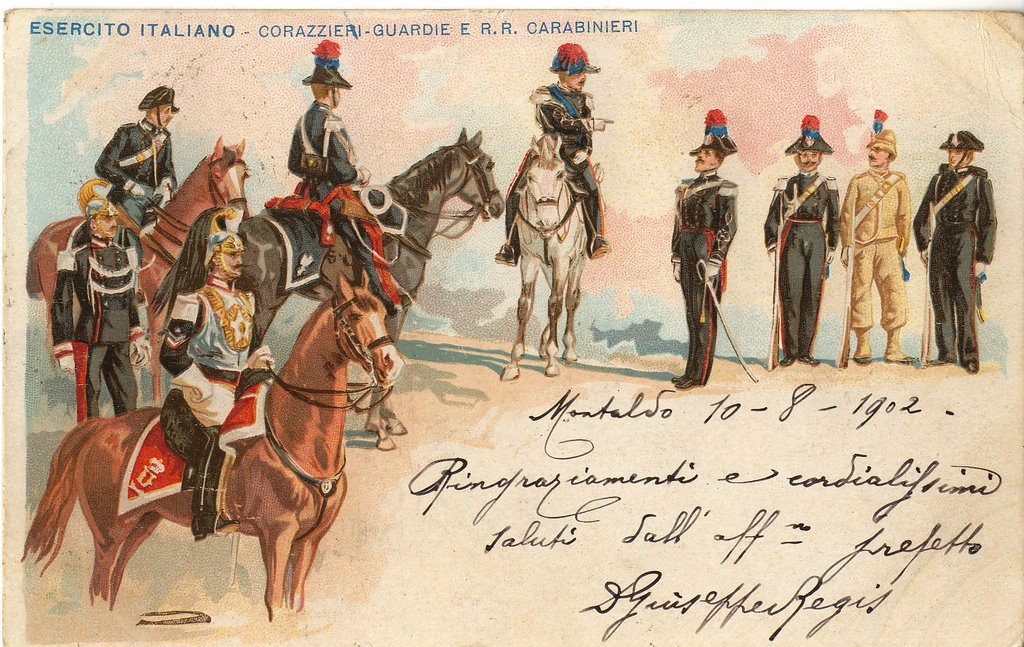 ESERCITO ITALIANO - CORAZZIERI - GUARDIE E R.R. CARABINIERI
Montaldo 10 - 8 - 1902 -
Ringraziamenti e cordialissimi
saluti dall' aff.mo prefetto
D Giuseppe Regis